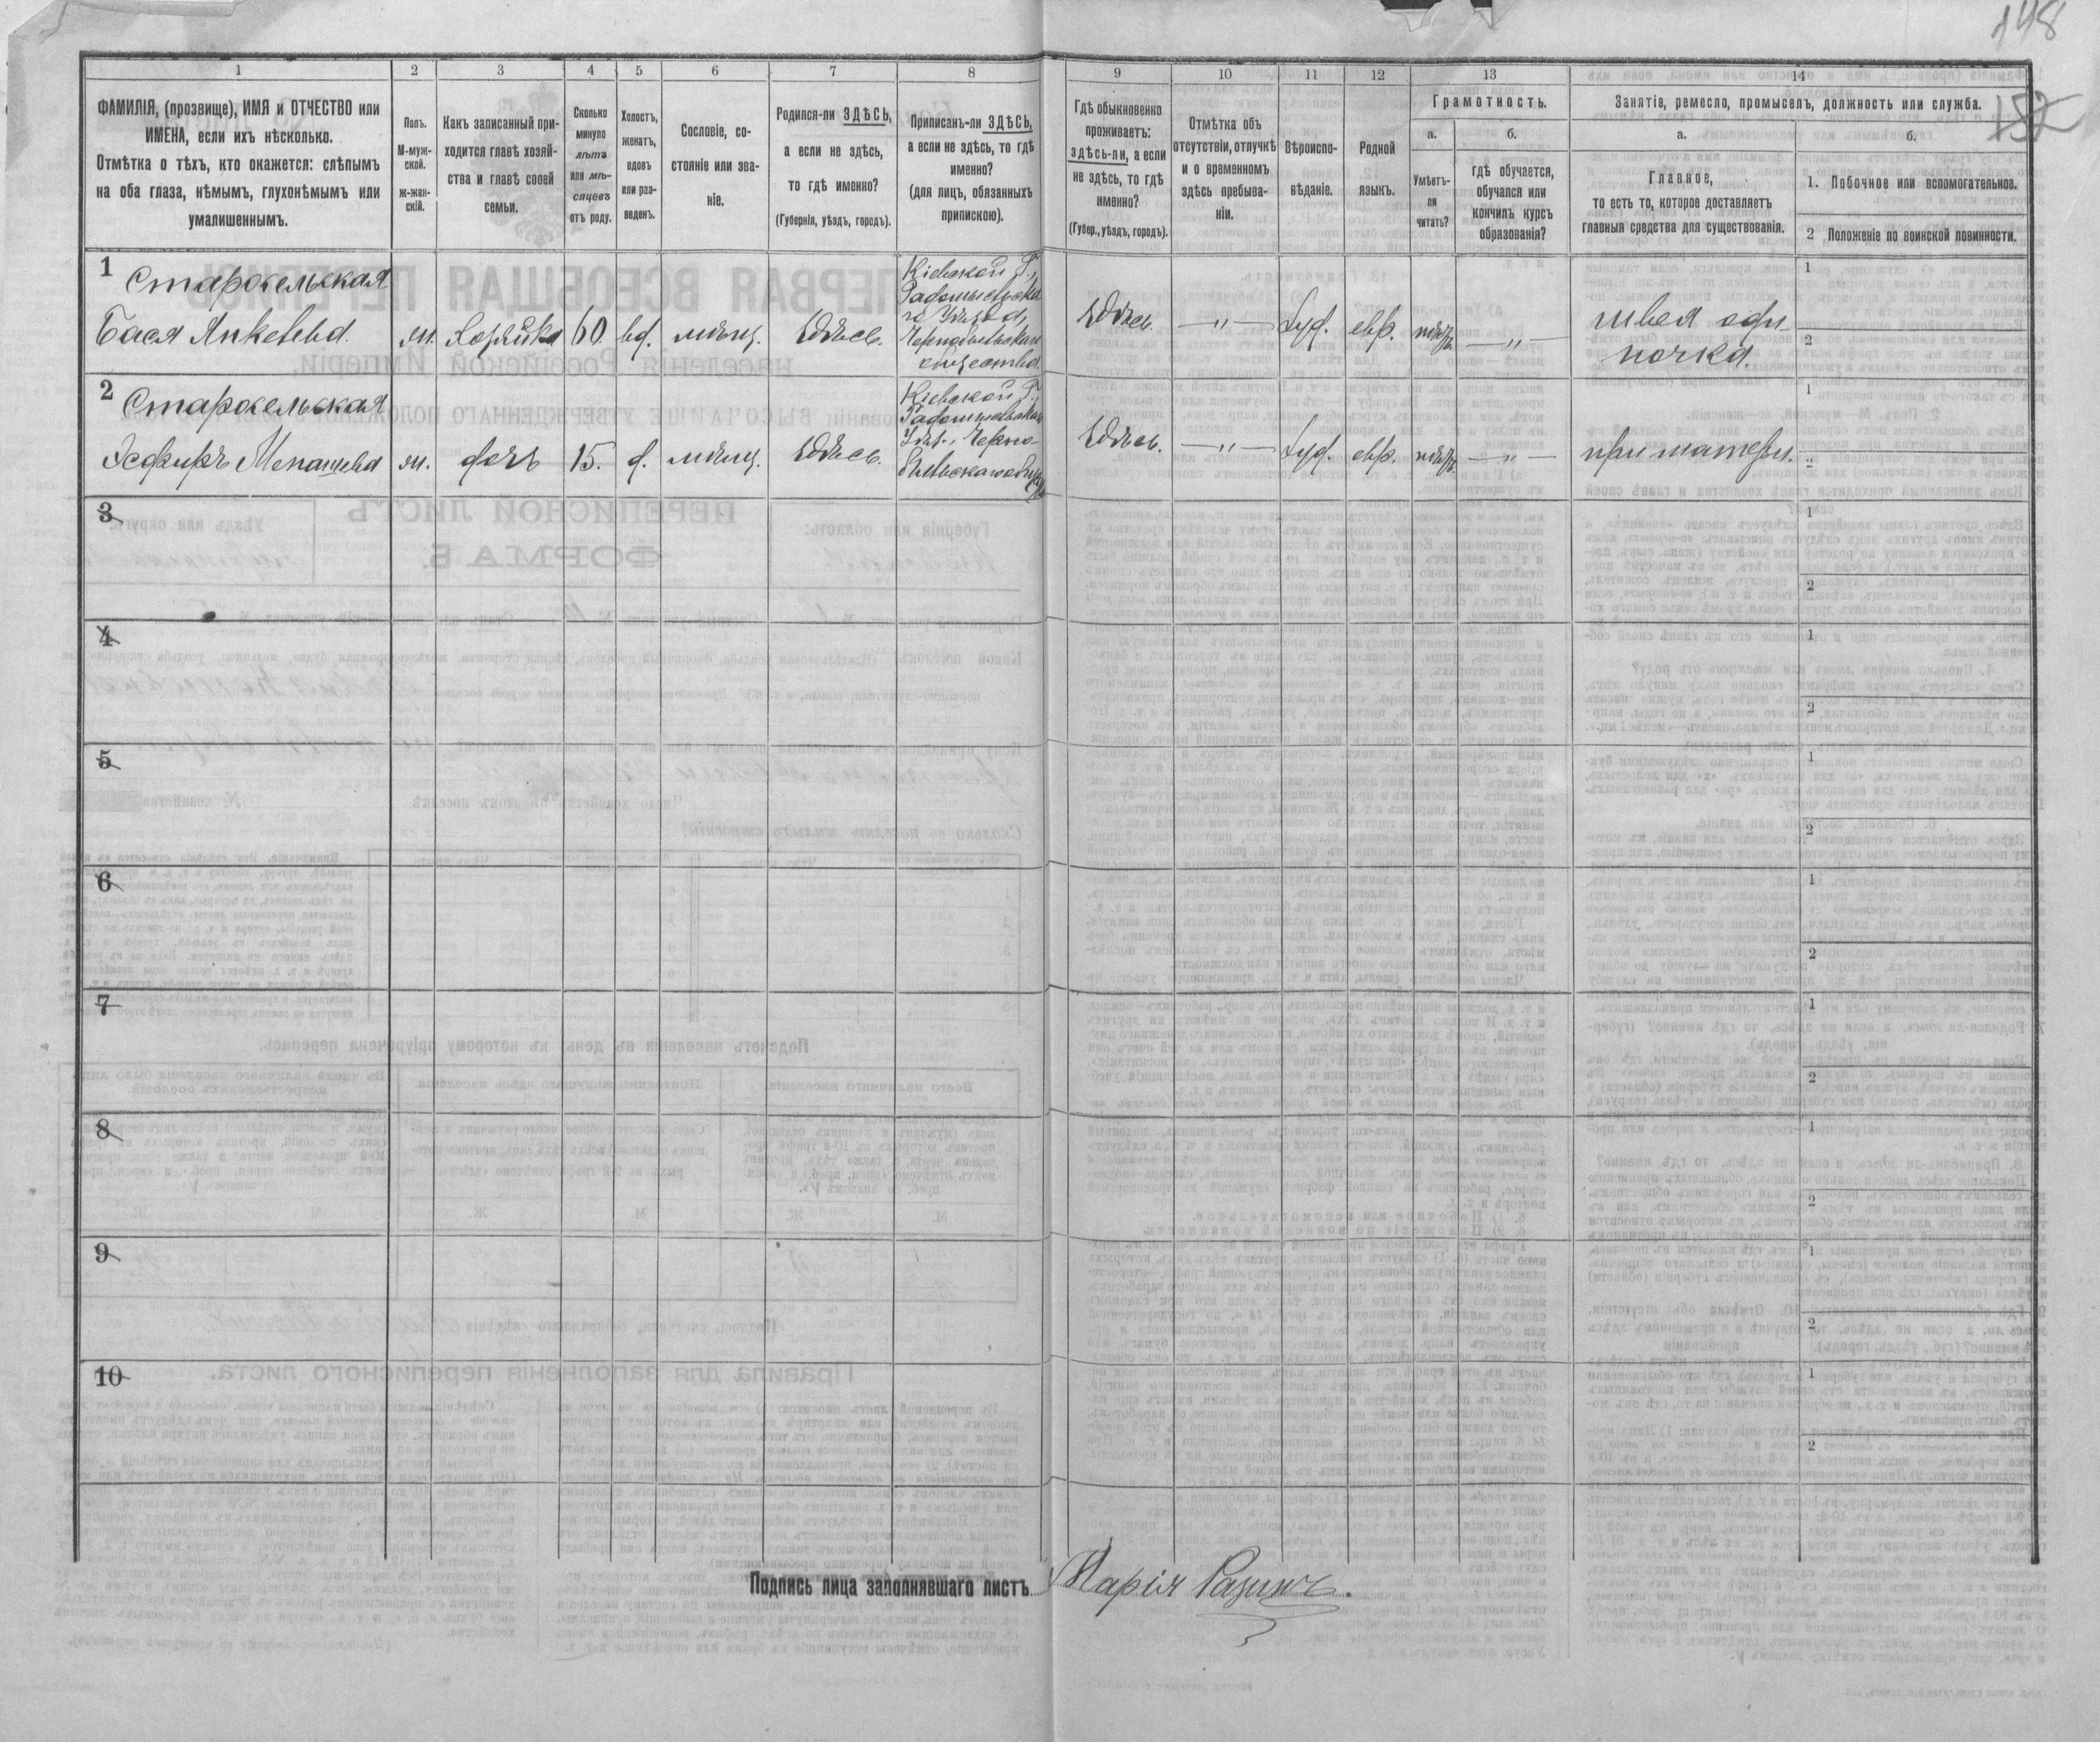 148
152
1 2 3 4 5 6 7 8 9 10 11 12 13 14
ФАМИЛІЯ, (прозвище), ИМЯ и ОТЧЕСТВО или
ИМЕНА, если ихъ нѣсколько.
Отмѣтка о тѣхъ, кто окажется: слѣпымъ
на оба глаза, нѣмымъ, глухонѣмымъ или
умалишеннымъ.
Полъ.
М-муж-
ской.
ж-жен-
скій.
Какъ записанный при-
ходится главѣ хозяй-
ства и главѣ своей
семьи.
Сколько
минуло
лѣтъ
или мѣ-
сяцевъ
отъ роду.
Холостъ,
женатъ,
вдовъ
или раз-
веденъ.
Сословіе, со-
стояніе или зва-
ніе.
Родился-ли ЗДѢСЬ,
а если не здѣсь,
то гдѣ именно?
(Губернія, уѣздъ, городъ).
Приписанъ-ли ЗДѢСЬ,
а если не здѣсь, то гдѣ
именно?
(для лицъ, обязанныхъ
припискою).
Гдѣ обыкновенно
проживаетъ:
здѣсь-ли, а если
не здѣсь, то гдѣ
именно?
(Губер., уѣздъ, городъ).
Отмѣтка объ
отсутствіи, отлучкѣ
и о временномъ
здѣсь пребыва-
ніи.
Вѣроиспо-
вѣданіе.
Родной
языкъ.
Грамотность.
а.
Умѣетъ-
ли
читать?
б.
гдѣ обучается,
обучался или
кончилъ курсъ
образованія?
Занятіе, ремесло, промыселъ, должность или служба.
а.
Главное,
то есть то, которое доставляетъ
главныя средства для существованія.
б.
1. Побочное или вспомогательное.
2 Положеніе по воинской повинности.
1
Старосельская
Бася Янкевева.
ж. Хозяйка 60. вд. мѣщ. Здѣсь.
Кіевской Г.,
Радомысльска
го Уѣзда,
Чернобыльскаго
общества.
Здѣсь. —"— Іуд. евр. нѣтъ. —"—
швея оди
ночка.
1
2
2
Старосельская
Эсфирь Менашева ж. дочь 15. д. мѣщ. Здѣсь.
Кіевской Г.,
Радомысльскаго
Уѣз., Черно-
быльскаго общ.
Здѣсь. —"— Іуд. евр. нѣтъ. —"—
при матери.
1
2
3
1
2
4
1
2
5
1
2
6
1
2
7
1
2
8
1
2
9
1
2
10
1
2
Подпись лица заполнявшаго листъ
Марія Разинъ.